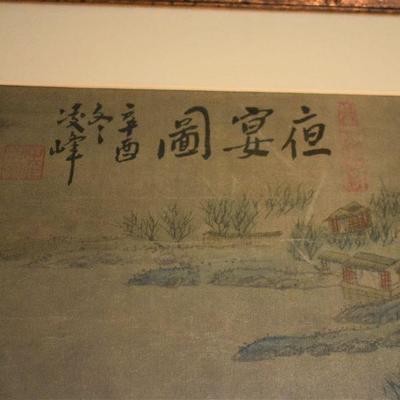 夜宴圖
辛酉
冬
凌峰